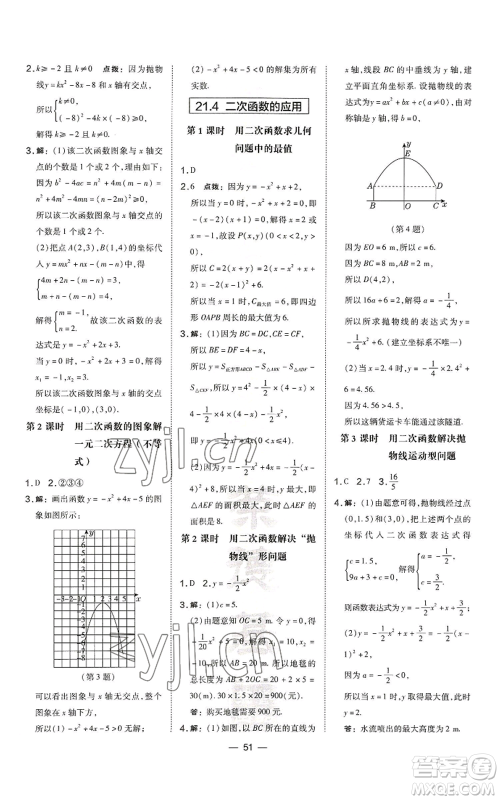 2. k≥-2 且 k≠0 点拨：因为抛物
线 y=kx²-8x-8 和 x 轴有交点，
所以{k≠0, (-8)²-4k×(-8)≥0.
所以 k≥-2 且 k≠0.
3. 解：(1)该二次函数图象与 x 轴交
点的个数是 1 或 2. 理由如下：
因为 b²-4ac=n²+4m(m+n)=
n²+4m²+4mn=(2m+n)²≥0，
所以该二次函数图象与 x 轴交点的
个数为 1 或 2.
(2)把点 A(2,3)，B(1,4)的坐标代
入，得
{4m+2n-(m+n)=3,
m+n-(m+n)=4,
所以{m=-1,
n=2. 故该二次函数的表
达式是 y=-x²+2x+3.
当 y=0 时，0=-x²+2x+3，解得
x₁=-1，x₂=3.
所以该二次函数图象与 x 轴的交点
坐标是(-1,0)，(3,0).
第 2 课时 用二次函数的图象解
一元二次方程（不等
式）
1. D 2. ②③④
3. 解：画出函数 y=-x²+4x-5 的图
象如图所示：
(第 3 题)
可以看出函数图象与 x 轴没有交点，
图象在 x 轴下方，开口向下，
所以(1)-x²+4x-5>0 无解；
(2)-x²+4x-5<0 的解集为所有
实数.
21.4 二次函数的应用
第 1 课时 用二次函数求几何
问题中的最值
1. D
2. 6 点拨：因为 y=-x²+x+2，
所以当 y=0 时，-x²+x+2=0，
即-(x-2)(x+1)=0，
解得 x=2 或 x=-1.
故设 P(x,y)(0<x<2，y>0)，
所以 C=2(x+y)=2(x-x²+x+
2)=-2(x-1)²+6.
所以当 x=1 时，C最大值=6. 即四边
形 OAPB 周长的最大值为 6.
3. 解：(1)因为 BC=DC，CE=CF，
所以 BE=DF=4-x，
所以 y=S正方形ABCD-S△ABE-S△ADF-
S△CEF，
所以 y=4²-1/2×4(4-x)×2-
1/2x²=4x-1/2x².
(2)因为 y=-1/2x²+4x=-1/2(x-
4)²+8，所以当 x=4，即 CE=4 时，
△AEF 的面积最大，此时 △AEF 的
面积是 8.
第 2 课时 用二次函数解决“抛
物线”形问题
1. D 2. y=-1/2x²
3. 解：(1)c=5.
(2)由(1)知 OC=5 m. 令 y=0，即
-1/20x²+5=0，解得 x₁=10，x₂=
-10. 所以 AB=20 m. 所以地毯的
总长度为 AB+2OC=20+2×5=
30(m). 30×1.5×20=900(元).
答：购买地毯需要 900 元.
4. 解：(1)如图，以 BC 所在的直线为
x 轴，线段 BC 的中垂线为 y 轴，建
立平面直角坐标系. 设抛物线的表
达式为 y=ax²+bx+c(a≠0). 由
对称轴是 y 轴，得 b=0.
(第 4 题)
因为 EO=6 m，所以 c=6.
所以 D(4,2)，
所以 16a+6=2，解得 a=-1/4.
所以所求抛物线的表达式为 y=
-1/4x²+6.
(2)当 x=2.4 时，y=-1/4x²+6=
4.56.
因为 4.56>4.2，
所以这辆货运卡车能通过该隧道.
第 3 课时 用二次函数解决抛
物线运动型问题
1. C 2. 7 3. 16/5
4. 解：(1)由题意可得，抛物线经过点
(0,1.5)和(3,0)，把上述两个点的
坐标代入二次函数表达式，得
{c=1.5,
9a+3+c=0,
解得{a=-1/2,
c=1.5.
则函数表达式为 y=-1/2x²+x+
3/2.
(2)y=-1/2x²+x+3/2=-1/2(x-
1)²+2，
因为 a=-1/2<0，
所以当 x=1 时，y 取得最大值，此时
y=2.
答：水流喷出的最大高度为 2 m.
51